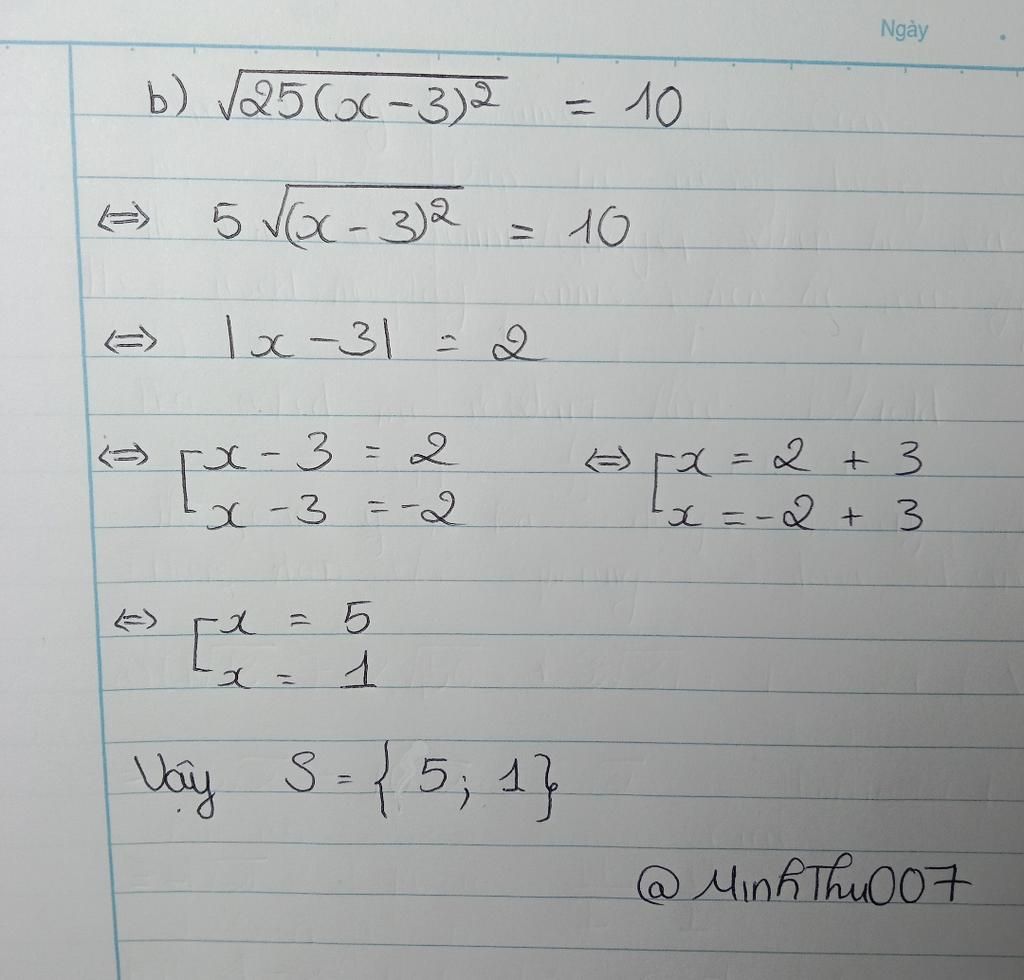 Ngày
b) √25(x - 3)² = 10
⇔ 5 √(x - 3)² = 10
⇔ |x - 3| = 2
⇔ [x - 3 = 2 ⇔ [x = 2 + 3
x - 3 = -2 x = -2 + 3
⇔ [x = 5
x = 1
Vậy S = { 5; 1}
@MinhThu007